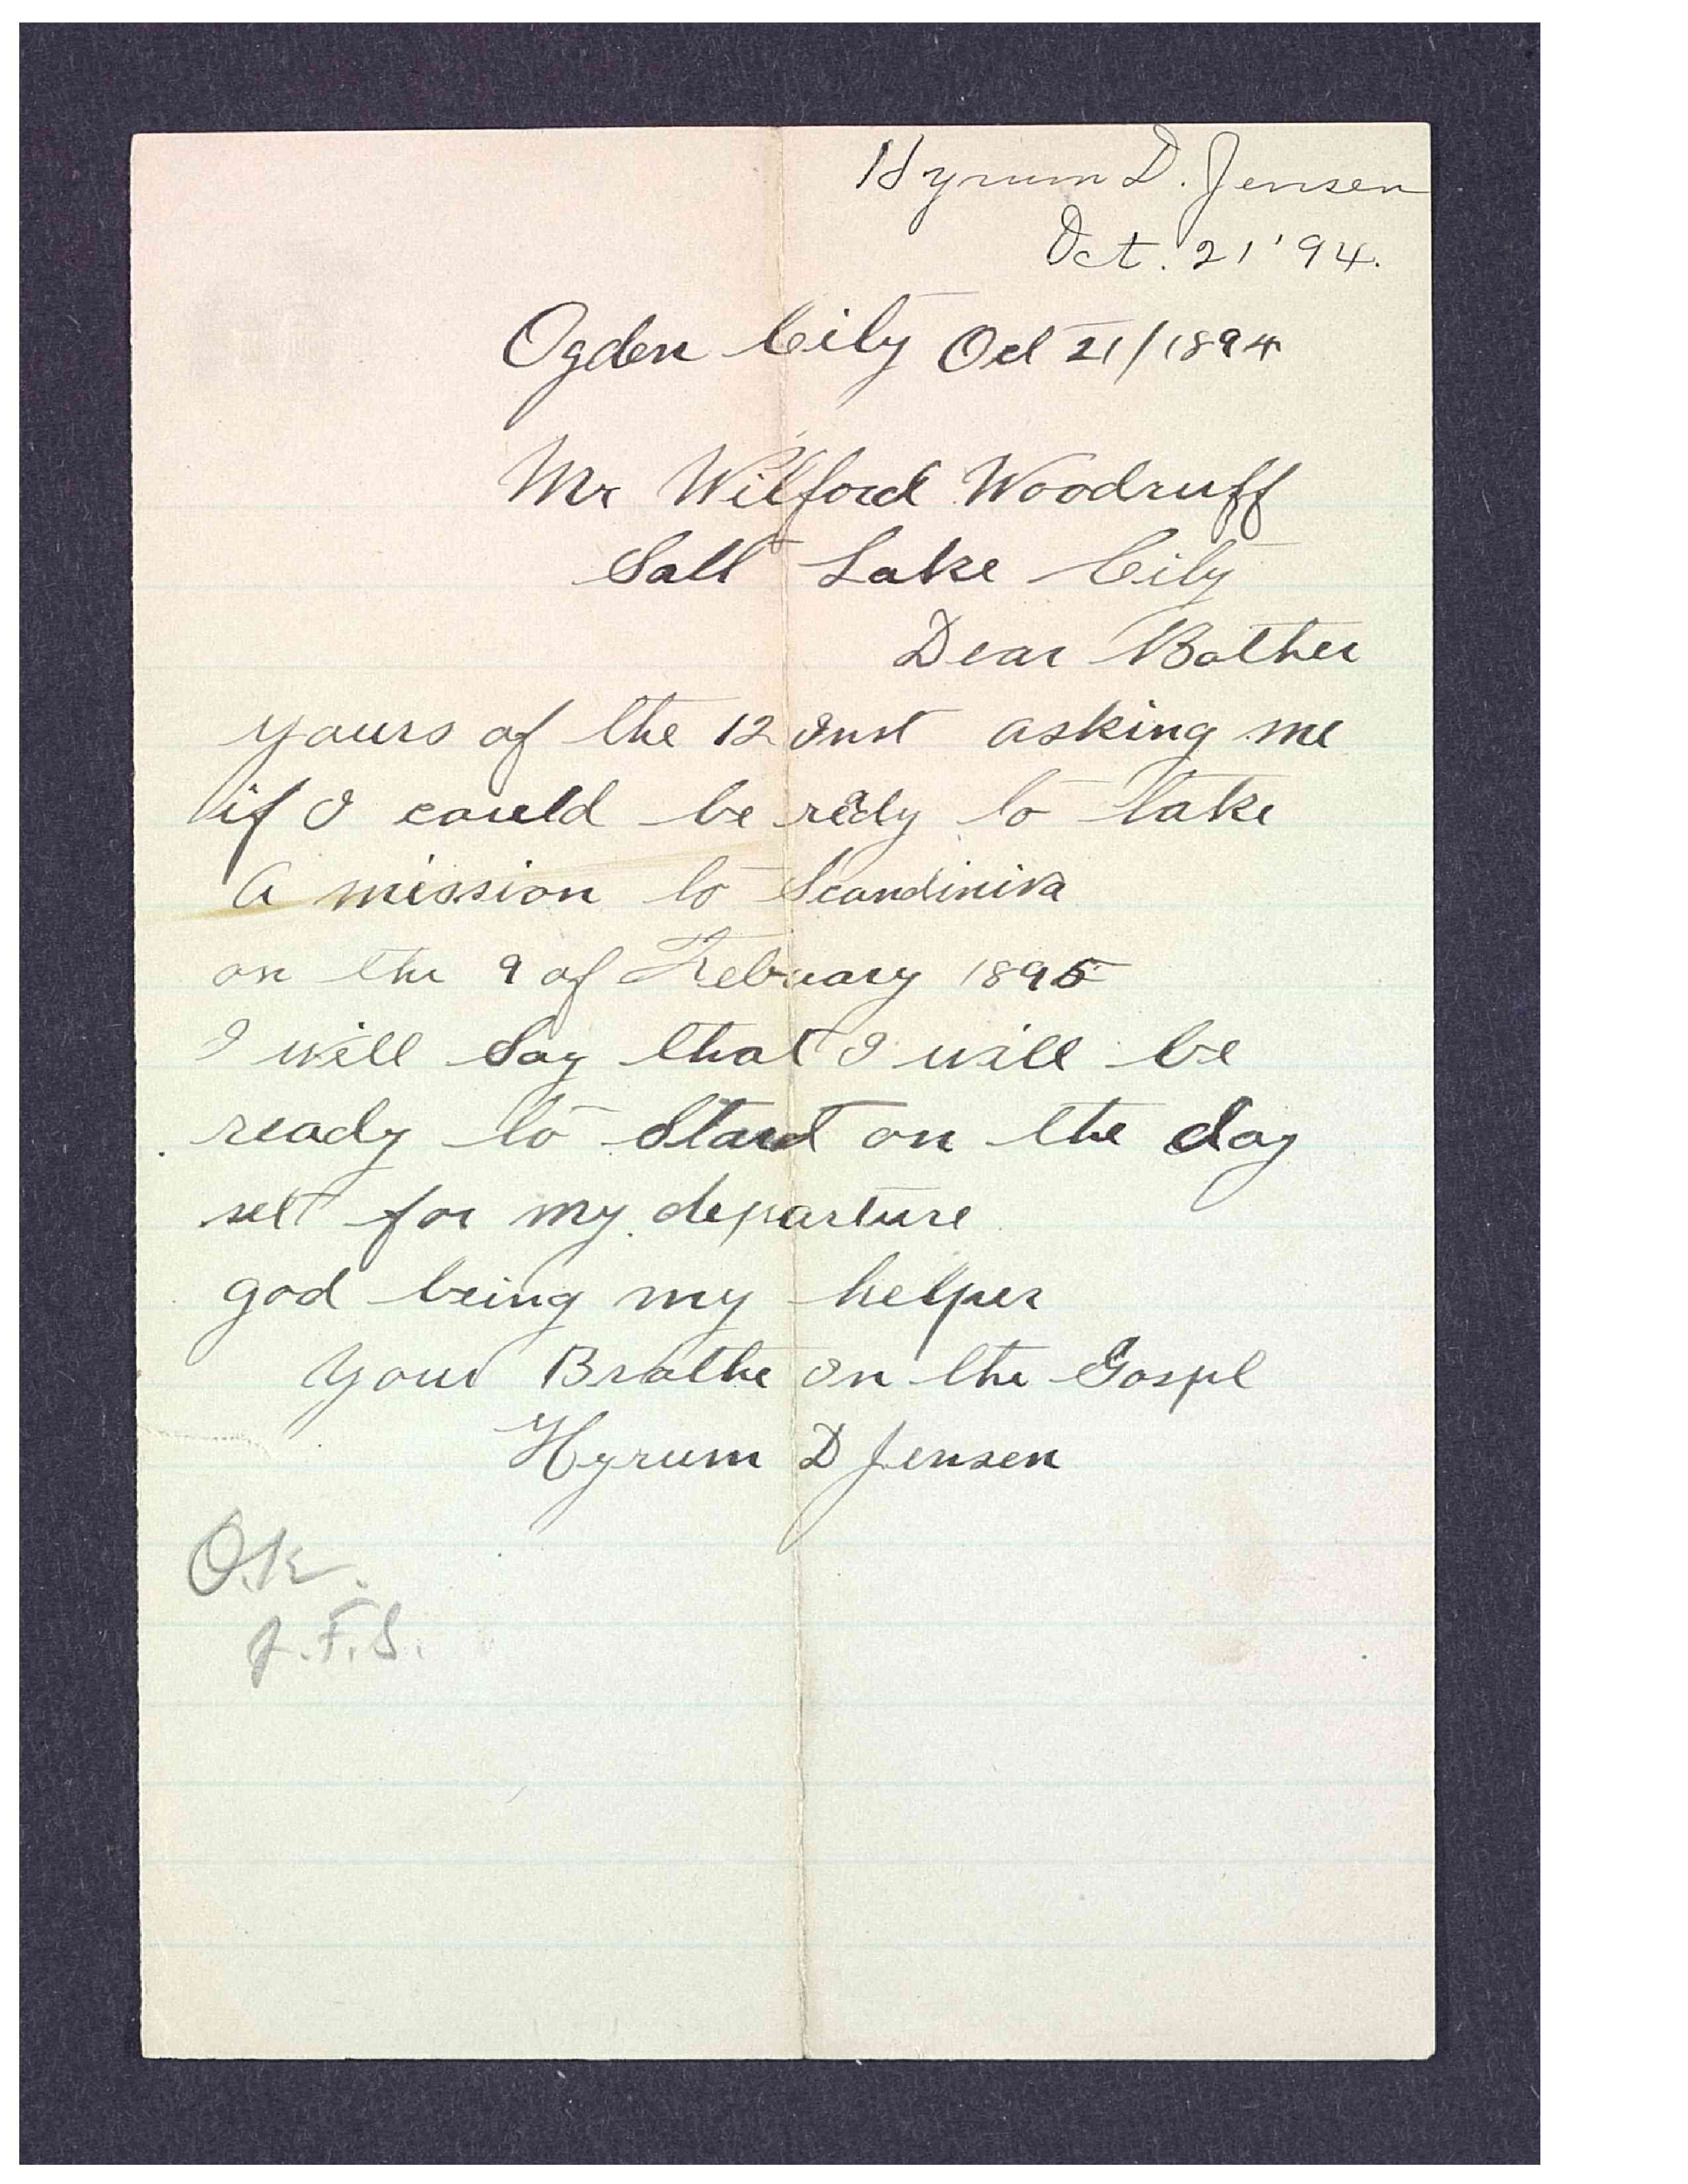 Hyrum D. Jensen
Oct. 21 '94.
Ogden City Oct 21/1894
Mr Wilford Woodruff
Salt Lake City
Dear Bother
yours of the 12 Inst asking me
if I could be redy to take
A mission to Scandiniva
on the 9 of February 1895
I will Say that I will be
ready to Start on the day
set for my departure
god being my helper
Your Brothe In the Gospel
Hyrum D Jensen
O.K.
J.F.S.